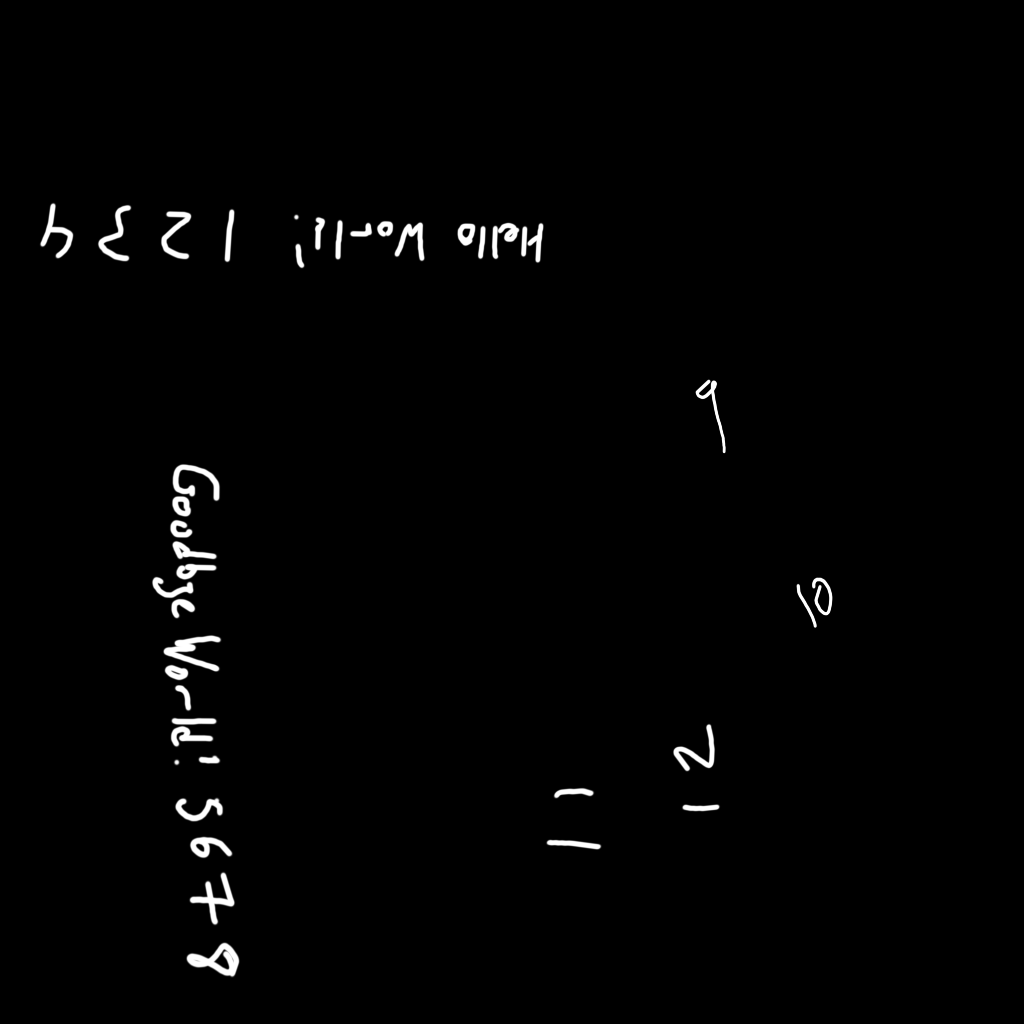 Hello World! 1 2 3 4
Goodbye World! 5 6 7 8
9
10
11
12